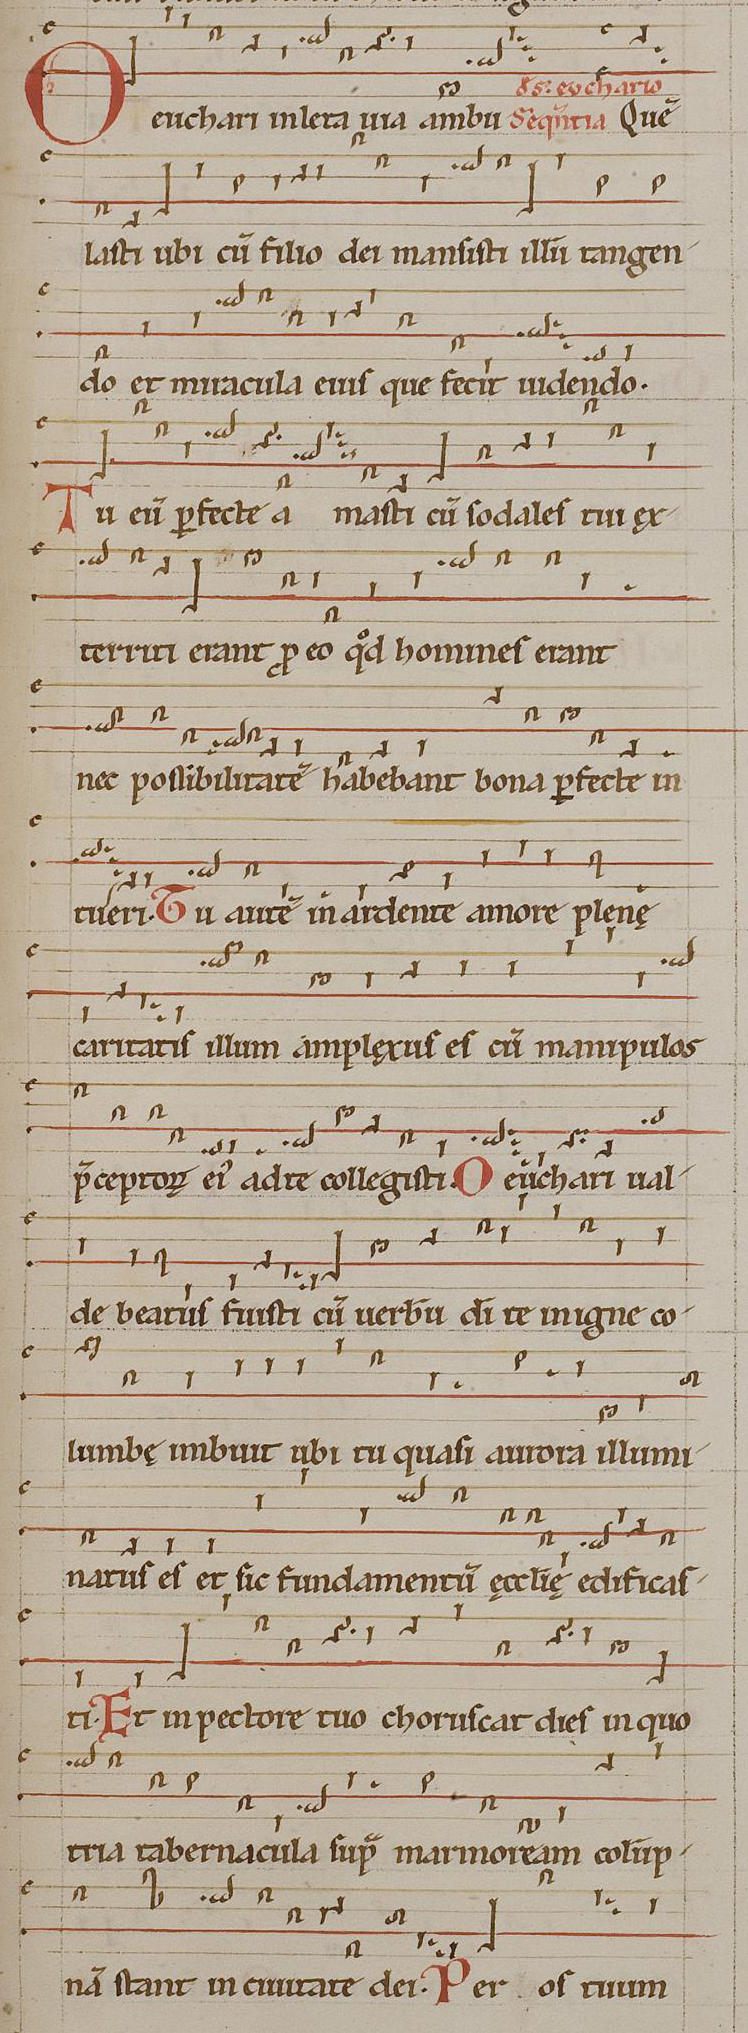 O euchari in leta uia ambu Seq̃ntia Quē
d̄s: euchario
lasti ubi cū filio dei mansisti illū tangen-
do et miracula eius que fecit uidendo.
Tu eū ꝑfecte a masti cū sodales tui ex-
territi erant ꝓ eo qͦd homines erant
nec possibilitatē habebant bona ꝑfecte in
tueri. Tu autē in ardente amore plenę
caritatis illum amplęxus es cū manipulos
p̄ceptoꝝ eiꝰ ad te collegisti. O euchari ual-
de beatus fuisti cū uerbū dī te in igne co-
lumbę imbuit ubi tu quasi aurora illumi-
natus es et sic fundamentū ęcclīę edificas-
ti. Et in pectore tuo choruscat dies in quo
tria tabernacula supͣ marmoream colūp-
nā stant in ciuitate dei. Per os tuum